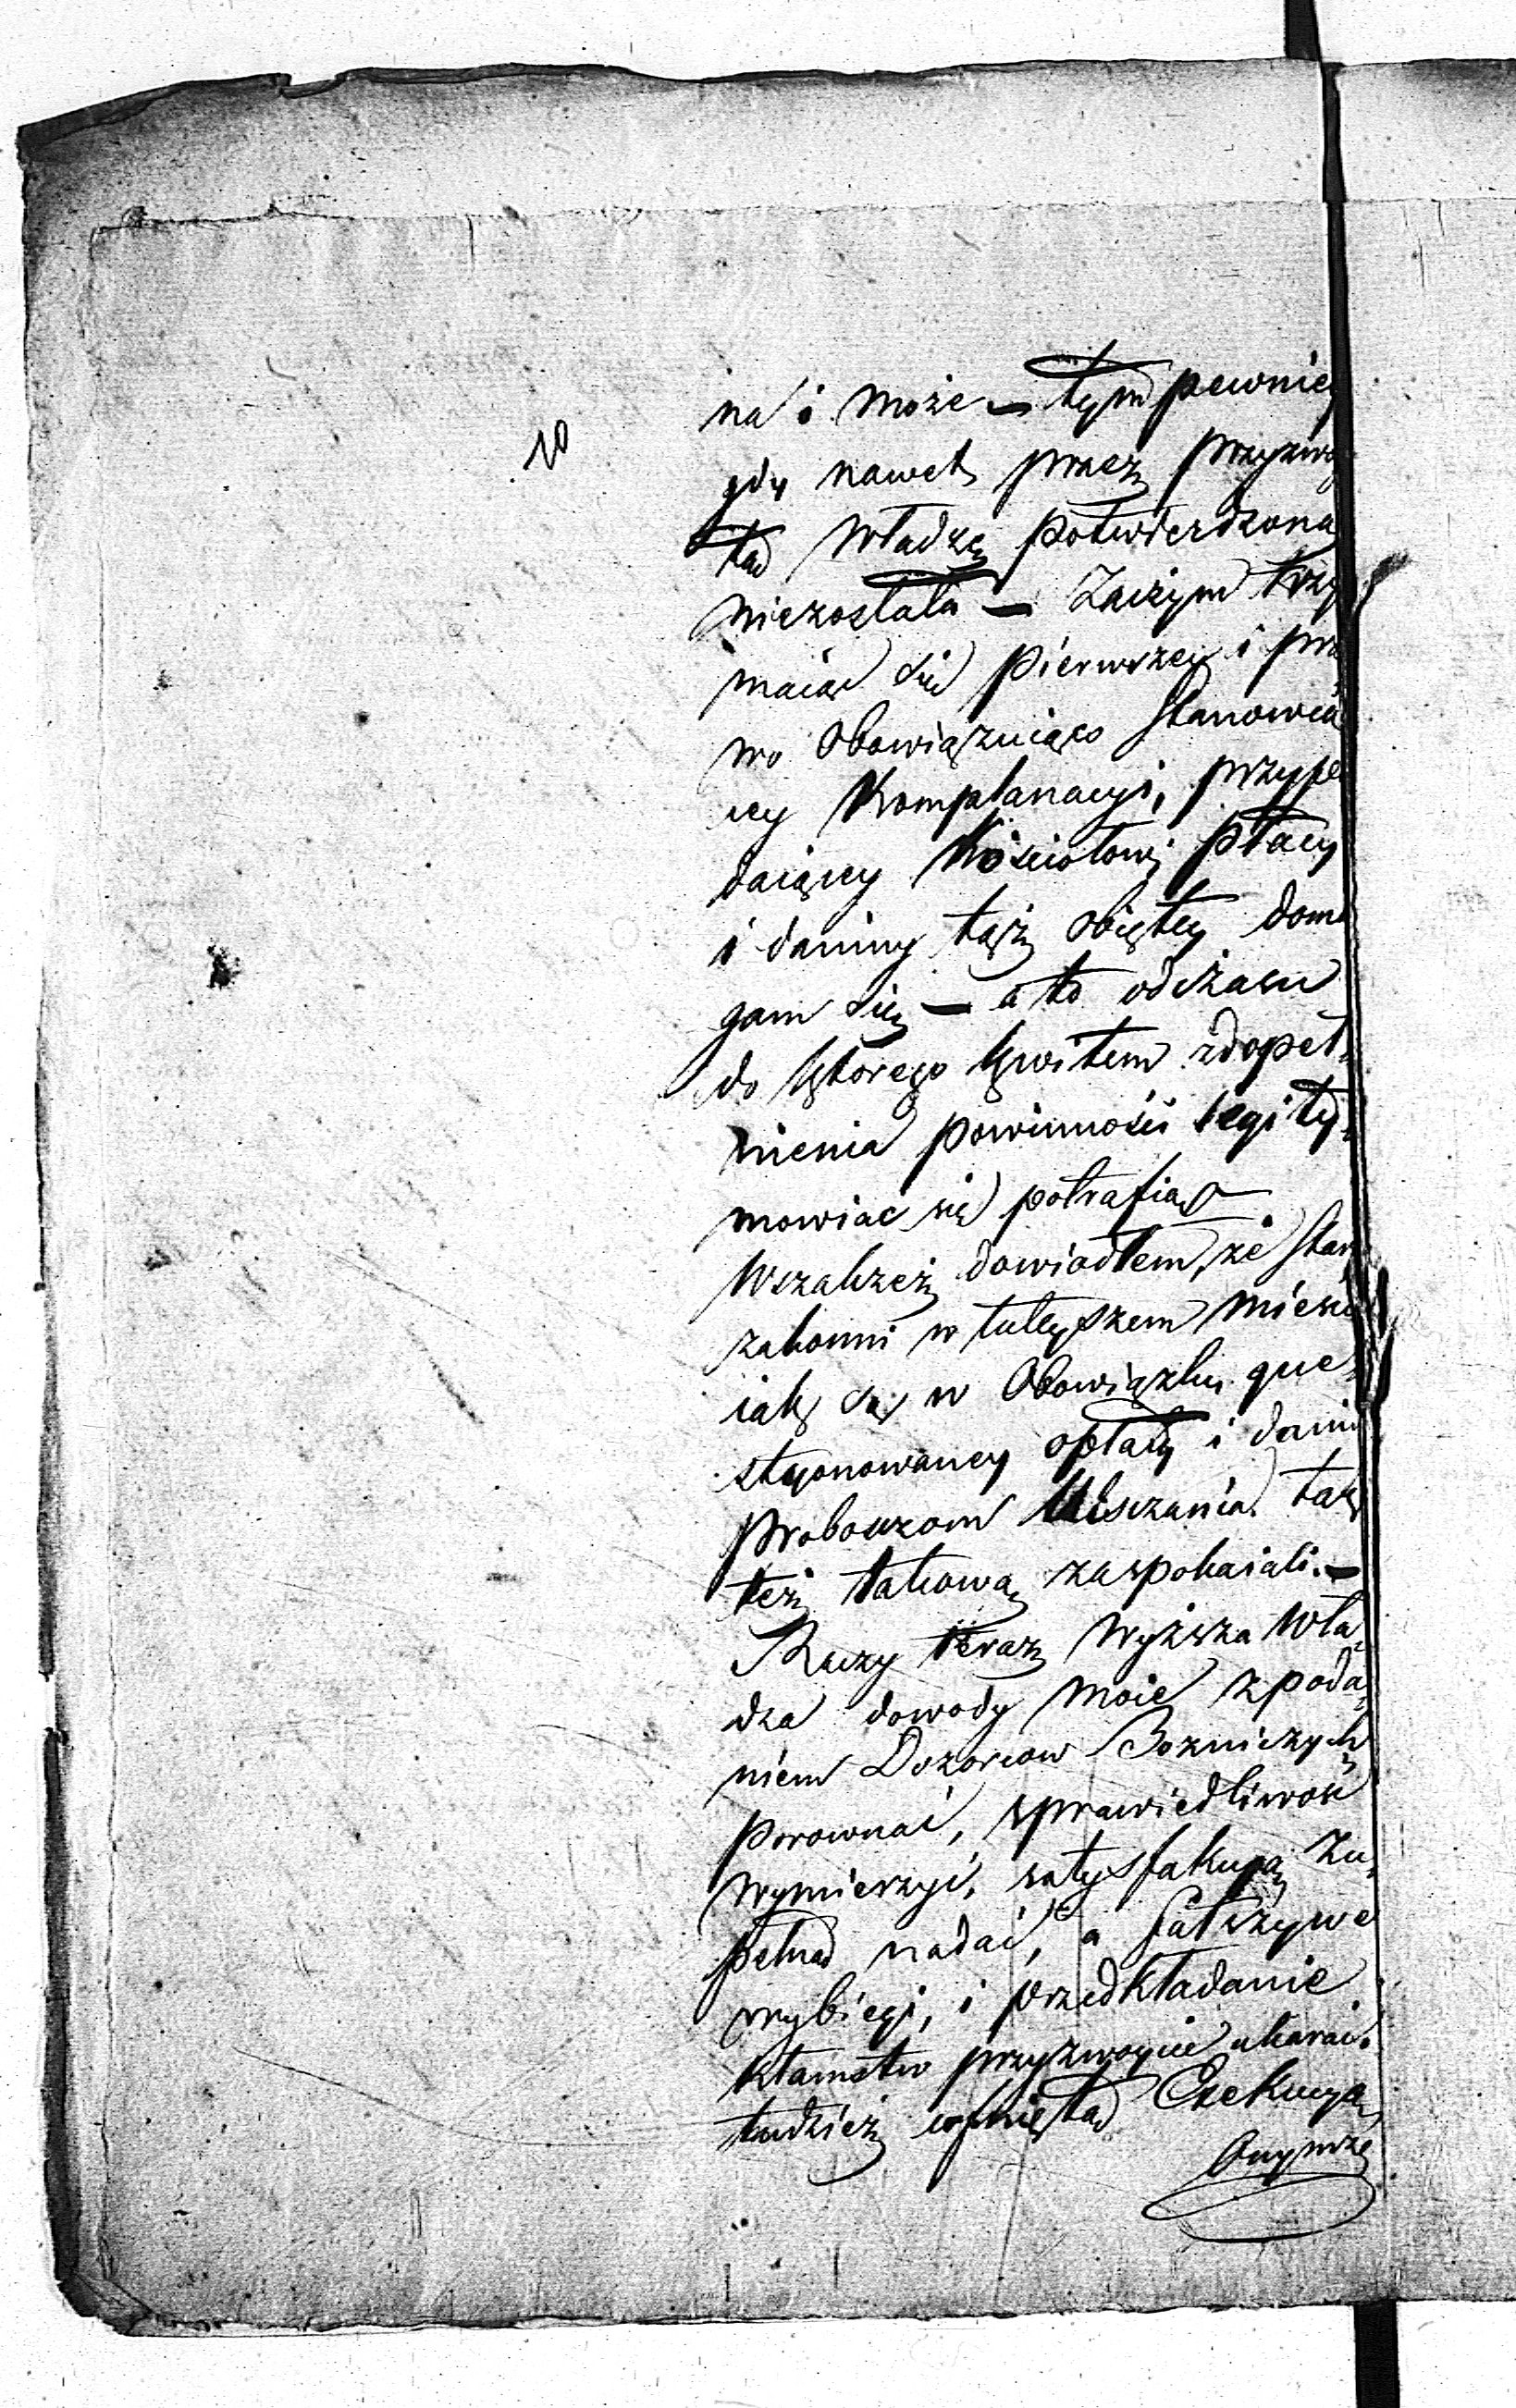 10
na i może — tym pewniey
gdy nawet przez przyzwo
tą Władzę potwierdzona
niezostała — Zaczym trzy
maiąc się pierwszey i pra
wo Obowiązuiąco stanowią
cy Komplanacyi, przypa
daiący Kościołowi płacy
i daniny tąż obiętey doma
gam się — a to odczasu
do którego kwitem zdopeł-
nienia powinności legity-
mowiac się potrafią
Wszakżeż dowiodłem, że Star
zakonni w tuteyszem mieści
iak są w Obowiązku que-
styonowaney opłaty i danin
Proboszczom Uiszczania tak
też takową zaspokaiali. —
Raczy teraz Wyższa Wła-
dza dowody moie z poda-
niem Dozorcow Boznicznych
porownać, sprawiedliwość
wymierzyć, satysfakcyą Zu-
pełną nadać, a fałszywe
wybiegi, i przedkładanie
kłamstw przyzwoicie ukarać.
tudzież Exekucyą